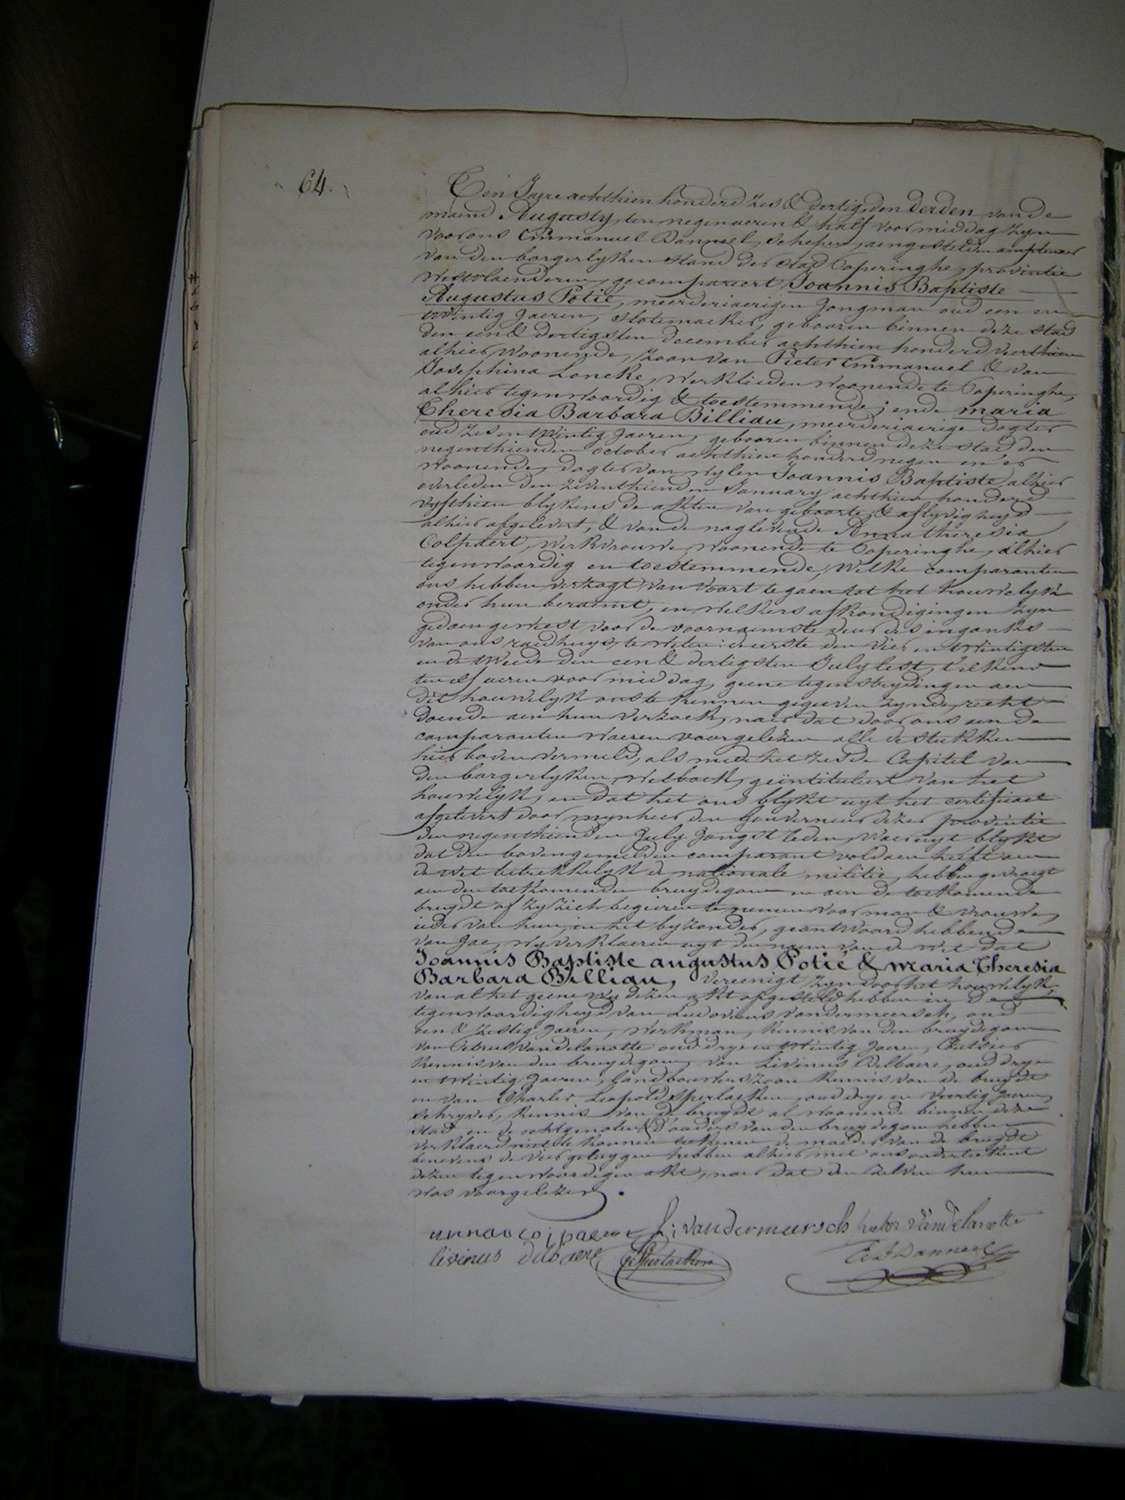 64.
Ten Jaere achthien honderd zes & dertig, den derden van de
maend Augusty, ten negen uren & half voormiddag zyn
voor ons Emmanuel Danneel, schepen, aengestelden amptenaer
van den borgerlyken stand der stad Poperinghe, provintie
Westvlaenderen, gecompareert Joannis Baptiste
Augustus Potié, meerderjaerigen Jongman oud een en
twintig Jaeren, slotemaeker, gebooren binnen deze stad
den een & dertigsten december achthien honderd veerthien
alhier woonende, zoon van Pieter Emmanuel & van
Josephina Loncke, werklieden woonende te Poperinghe,
alhier tegenwoordig & toestemmende; ende maria
Theresia Barbara Billiau, meerderjaerige dogter
oud zes en twintig Jaeren, gebooren binnen deze stad den
negenthienden october achthien honderd negen en er
woonende, dogter van wylen Joannis Baptiste alhier
overleden den zeventhienden January achthien honderd
vyfthien blykens de akten van geboorte & aflyvigheyd
alhier afgelevert, & van de naglevende Anna theresia
Colpaert, werkvrouwe, woonende te Poperinghe, alhier
tegenwoordig en toestemmende, Welke comparanten
ons hebben verzogt van voort te gaen tot het houwelyk
onder hun beraemt, en welkers afkondigingen zyn
gedaen geweest voor de voornaemste deur des ingangs
van ons raedhuys, te weten: de eerste den vier en twintigsten
en de tweede den een & dertigsten July lest, telkens
ten elf uren voor middag, geene tegenstrydingen aen
dit houwelyk ons te kennen gegeven zynde, recht
doende aen hun verzoek, naer dat door ons aen de
comparanten waeren voorgelezen alle de stukken
hier boven vermeld, als mede het zesde Capitel van
den borgerlyken Wetboek, geïntituleert van het
houwelyk, en dat het ons blykt uyt het certificaet
afgelevert door mynheer den Gouverneur dezer provintie
den negenthienden July Jongst leden, waer uyt blykt
dat den bovengemelden comparant voldaen heeft aen
de wet betrekkelyk de nationale militie, hebben gevraegt
aen den toekomenden bruydegom en aen de toekomende
bruydt of zy zich begeeren te nemen voor man & vrouwe,
ieder van hun, in het byzonder, geantwoord hebbende
van Jae, wy verklaeren uyt den naem van de wet dat
Joannis Baptiste augustus Potié & maria Theresia
Barbara Billiau, vereenigt zyn door het houwelyk,
van al het geene wy dezen akt opgesteld hebben in de
tegenwoordigheyd van Ludovicus vandermeersch, oud
een & zestig Jaeren, werkman, kennis van den bruydegom
van Petrus vandelanotte oud drye en twintig Jaeren,
kennis van den bruydegom, van Livinus Delbaere, oud drye
en twintig Jaeren, landbouwers zoon kennis van de bruydt
en van Charles Leopold oud drye en veertig Jaeren,
schryver, kennis van de bruydt al woonende binnen deze
stad, en de echtgenoten & ouders van den bruydegom hebben
verklaert niet te konnen teekenen, de moeder van de bruydt
benevens de vier getuygen hebben alhier met ons onderteekent
dezen tegenwoordigen akt, naer dat den zelven hun
was voorgelezen.
anna colpaert L: vandermeersch Pieter vandelanotte
livinus delbaere Em Danneel